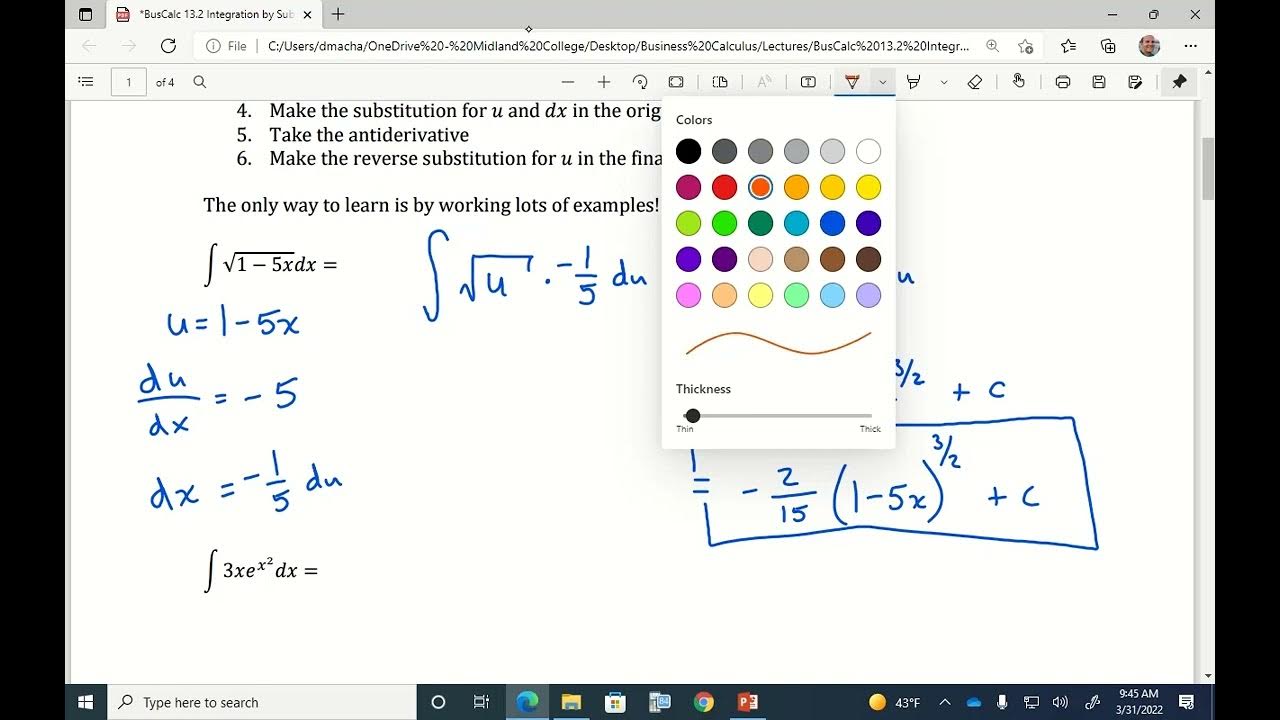 *BusCalc 13.2 Integration by Sub
File | C:/Users/dmacha/OneDrive%20-%20Midland%20College/Desktop/Business%20Calculus/Lectures/BusCalc%2013.2%20Integr...
1 of 4
4. Make the substitution for u and dx in the orig
5. Take the antiderivative
6. Make the reverse substitution for u in the fina
The only way to learn is by working lots of examples!
Colors
Thickness
Thin Thick
∫ √(1 − 5x)dx =
∫ √u · −1/5 du
u
u = 1 − 5x
du/dx = − 5
3/2 + C
dx = −1/5 du
= − 2/15 (1 − 5x)^3/2 + C
∫ 3xe^x² dx =
Type here to search
43°F
9:45 AM
3/31/2022